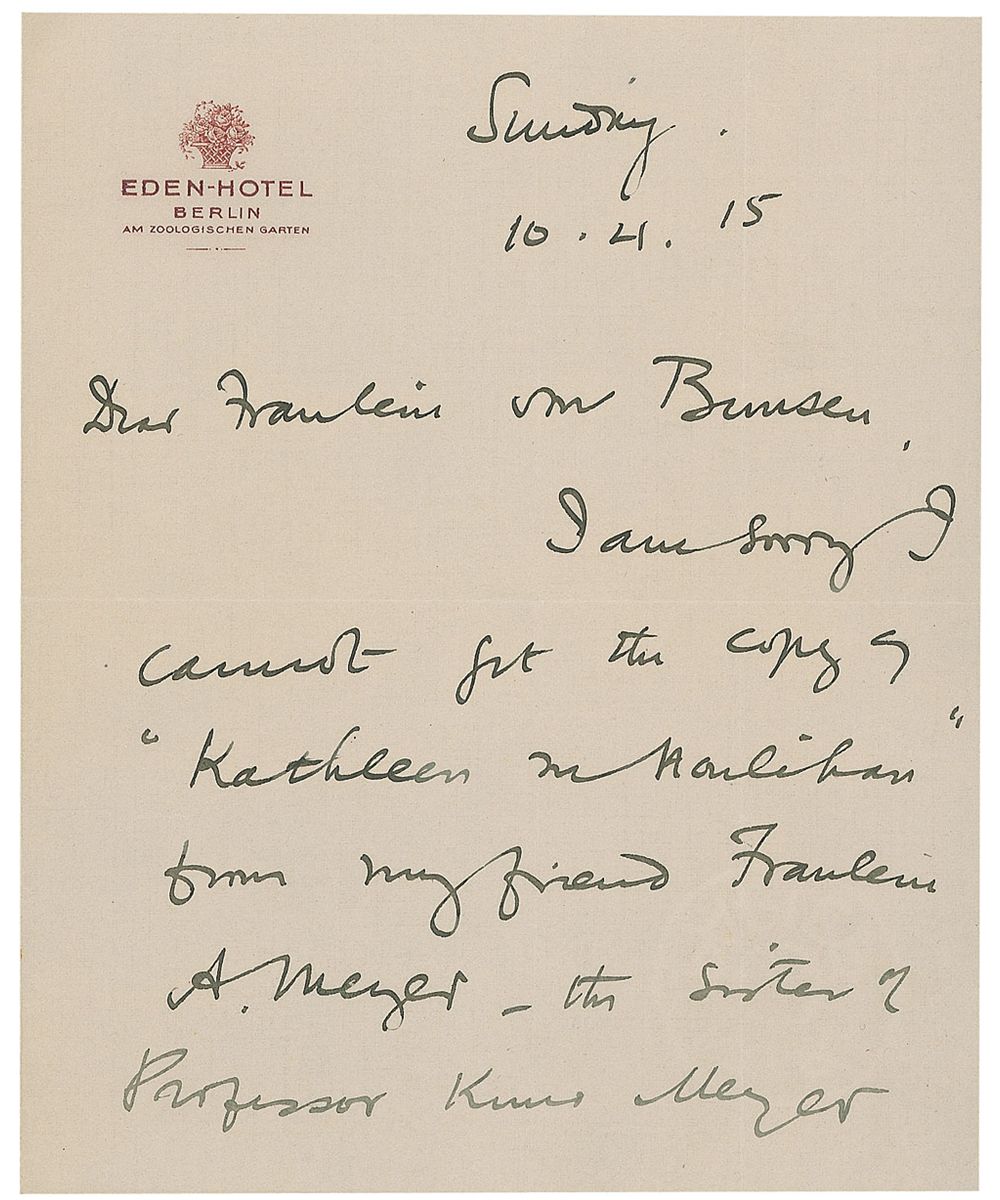 EDEN-HOTEL
BERLIN
AM ZOOLOGISCHEN GARTEN
Sunday.
10.4.15
Dear Fraulein von Bunsen,
I am sorry I
cannot get the copy of
"Kathleen ni Houlihan"
from my friend Fraulein
A. Meyer – the sister of
Professor Kuno Meyer